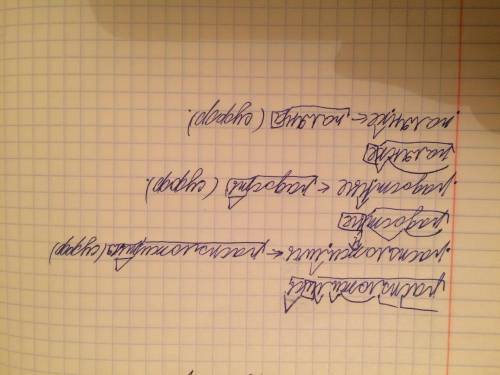 расположились
расположились ← расположиться (суфф)
радостные
радостные ← радость (суфф).
полянке
полянке ← поляна (суфф).